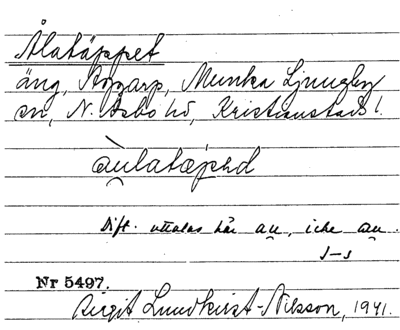 Ålatäppet
äng, Skogarp, Munka Ljungby
sn, N. Åsbo hd, Kristianstads l.
àulatæpəd
Dift. uttalas här au, icke au.
J-s
Nr 5497.
Birgit Lundkvist-Nilsson, 1941.